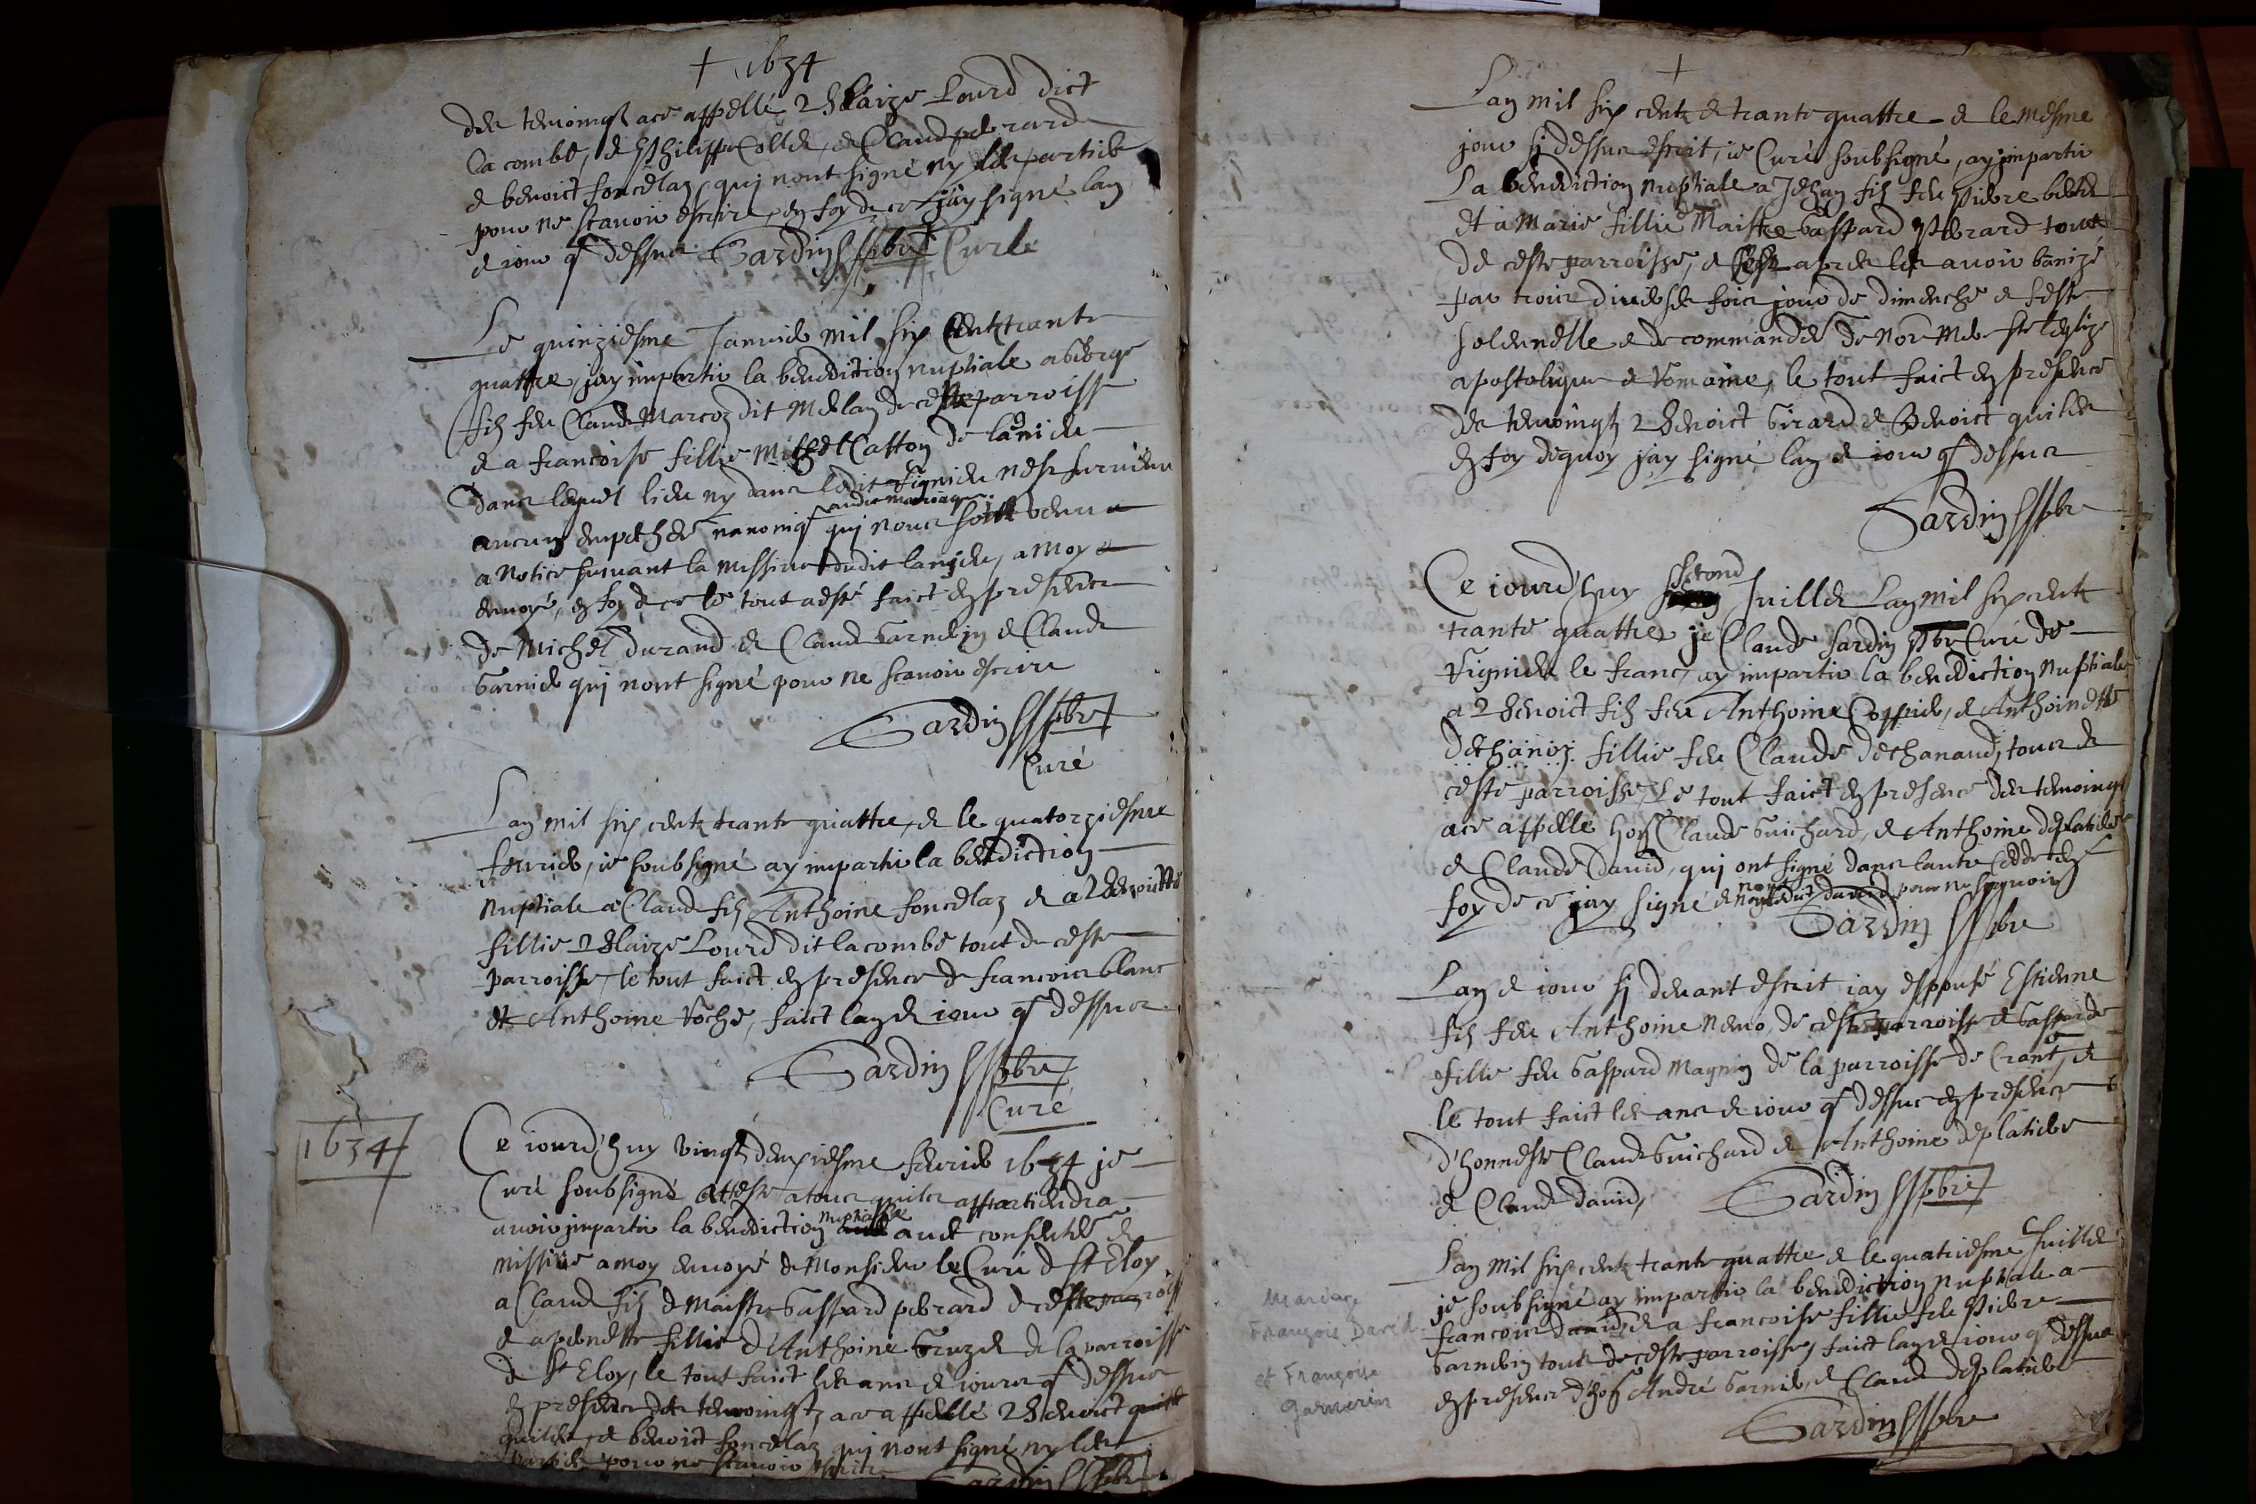 + 1634
des temoingz ace appellé Blaize Lourd dict
la combe, & Philippe Collet, & Claude perard
& benoict foncelaz, qui nont signé ny les parties
pour ne scavoir escrire, en foy de ce jay signé lan
& iour q dessus Sardin pbre Curé
Le quinziesme Janvier mil six centz trante
quattre, jay imparti la benediction nuptiale a George
filz feu Claude Marcoz dit Melan de ceste parroisse
& a francoise fillie Michel Catton de lanieu
dans lequel lieu ny dans ledit Vignieu nest survenu
aucun empechement canoniq audit mariage qui nous soit venu
a notice suivant la missive dudit lanieu, a moy
envoyé, en foy de ce le tout a esté faict en presence
de Michel durand & Claude Garnerin & Claude
Garnier qui nont signé pour ne scavoir escrire
Sardin pbre
Curé
Lan mil six centz trante quattre, & le quatorziesme
fevrier, je soubsigné ay imparti la benediction
nuptiale a Claude filz Anthoine foncelaz & a Benoitte
fillie Blaize Lourd dit lacombe tout de ceste
parroisse, le tout faict en presence de francois blanc
et Anthoine Roche, faict lan & iour q dessus
Sardin pbre
Curé
1634
Ce iourd'huy vingt deuxiesme fevrier 1634 je
Curé soubsigné atteste a tous quilz appartiendra
avoir imparti la benediction nuptiale avec consente &
missive a moy envoyé de Monsieur le Curé de St Eloy
a Claude filz de Maistre Gaspard perard de ceste parroisse
& a pernette fillie d'Anthoine Gruzet de la parroisse
de St Eloy, le tout faict les ans & iours q dessus
en presence des temoingtz ace appellé Benoict
quilet, & benoict foncelaz qui nont signé ny les
parties pour ne scavoir escrire Sardin pbre
+
Lan mil six centz & trante quattre & le mesme
jour si dessus escrit, ie Curé soubsigné, ay imparti
La benediction nuptiale a Jehan filz feu Pierre
et a Marie fillie de Maistre Gaspard Perard tous
de ceste parroisse, & apres les avoir banizé
par trois diverses fois jour de dimenche & feste
solennelle & de commandée de nore Mere Ste Eglize
apostolique & Romaine, le tout faict en presence
des temoingtz Benoict Girard & Benoict quilet
en foy dequoy jay signé lan & iour q dessus
Sardin pbre
Ce iourd'huy second Juillet Lan mil six centz
trante quattre je Claude Sardin Pbre Curé de
Vignieu le franc, ay imparti la benediction nuptiale
a Benoict filz feu Anthoine Coppier, & Anthoinette
dechanoz fillie feu Claude dechanaud, tous de
ceste parroisse, Le tout faict en presence des temoingz
ace appellé hon Claude Guichard, & Anthoine desplatieres
& Claude David, qui ont signé dans lautre Cedde en
foy de ce jay signé & non ledict david pour ne scavoir
Sardin pbre
Lan & iour si devant escrit jay espousé Estienne
filz feu Anthoine Nero, de ceste parroisse & Gasparde
fillie feu Gaspard Magnin de la parroisse de Crane, &
le tout faict les ans & iour q dessus en presence
d'honneste Claude Guichard & Anthoine deplatieres
& Claude David, Sardin pbre
Lan mil six centz trante quattre & le quatriesme Juillet
je soubsigné ay imparti la benediction nuptiale a
francois david & a francoise fillie feu Pierre
Garnerin tout de ceste parroisse, faict lan & iour q dessus
en presence d'hon André Garnier, & Claude desplatieres
Sardin pbre
Mariage
François David
et Françoise
Garnerin